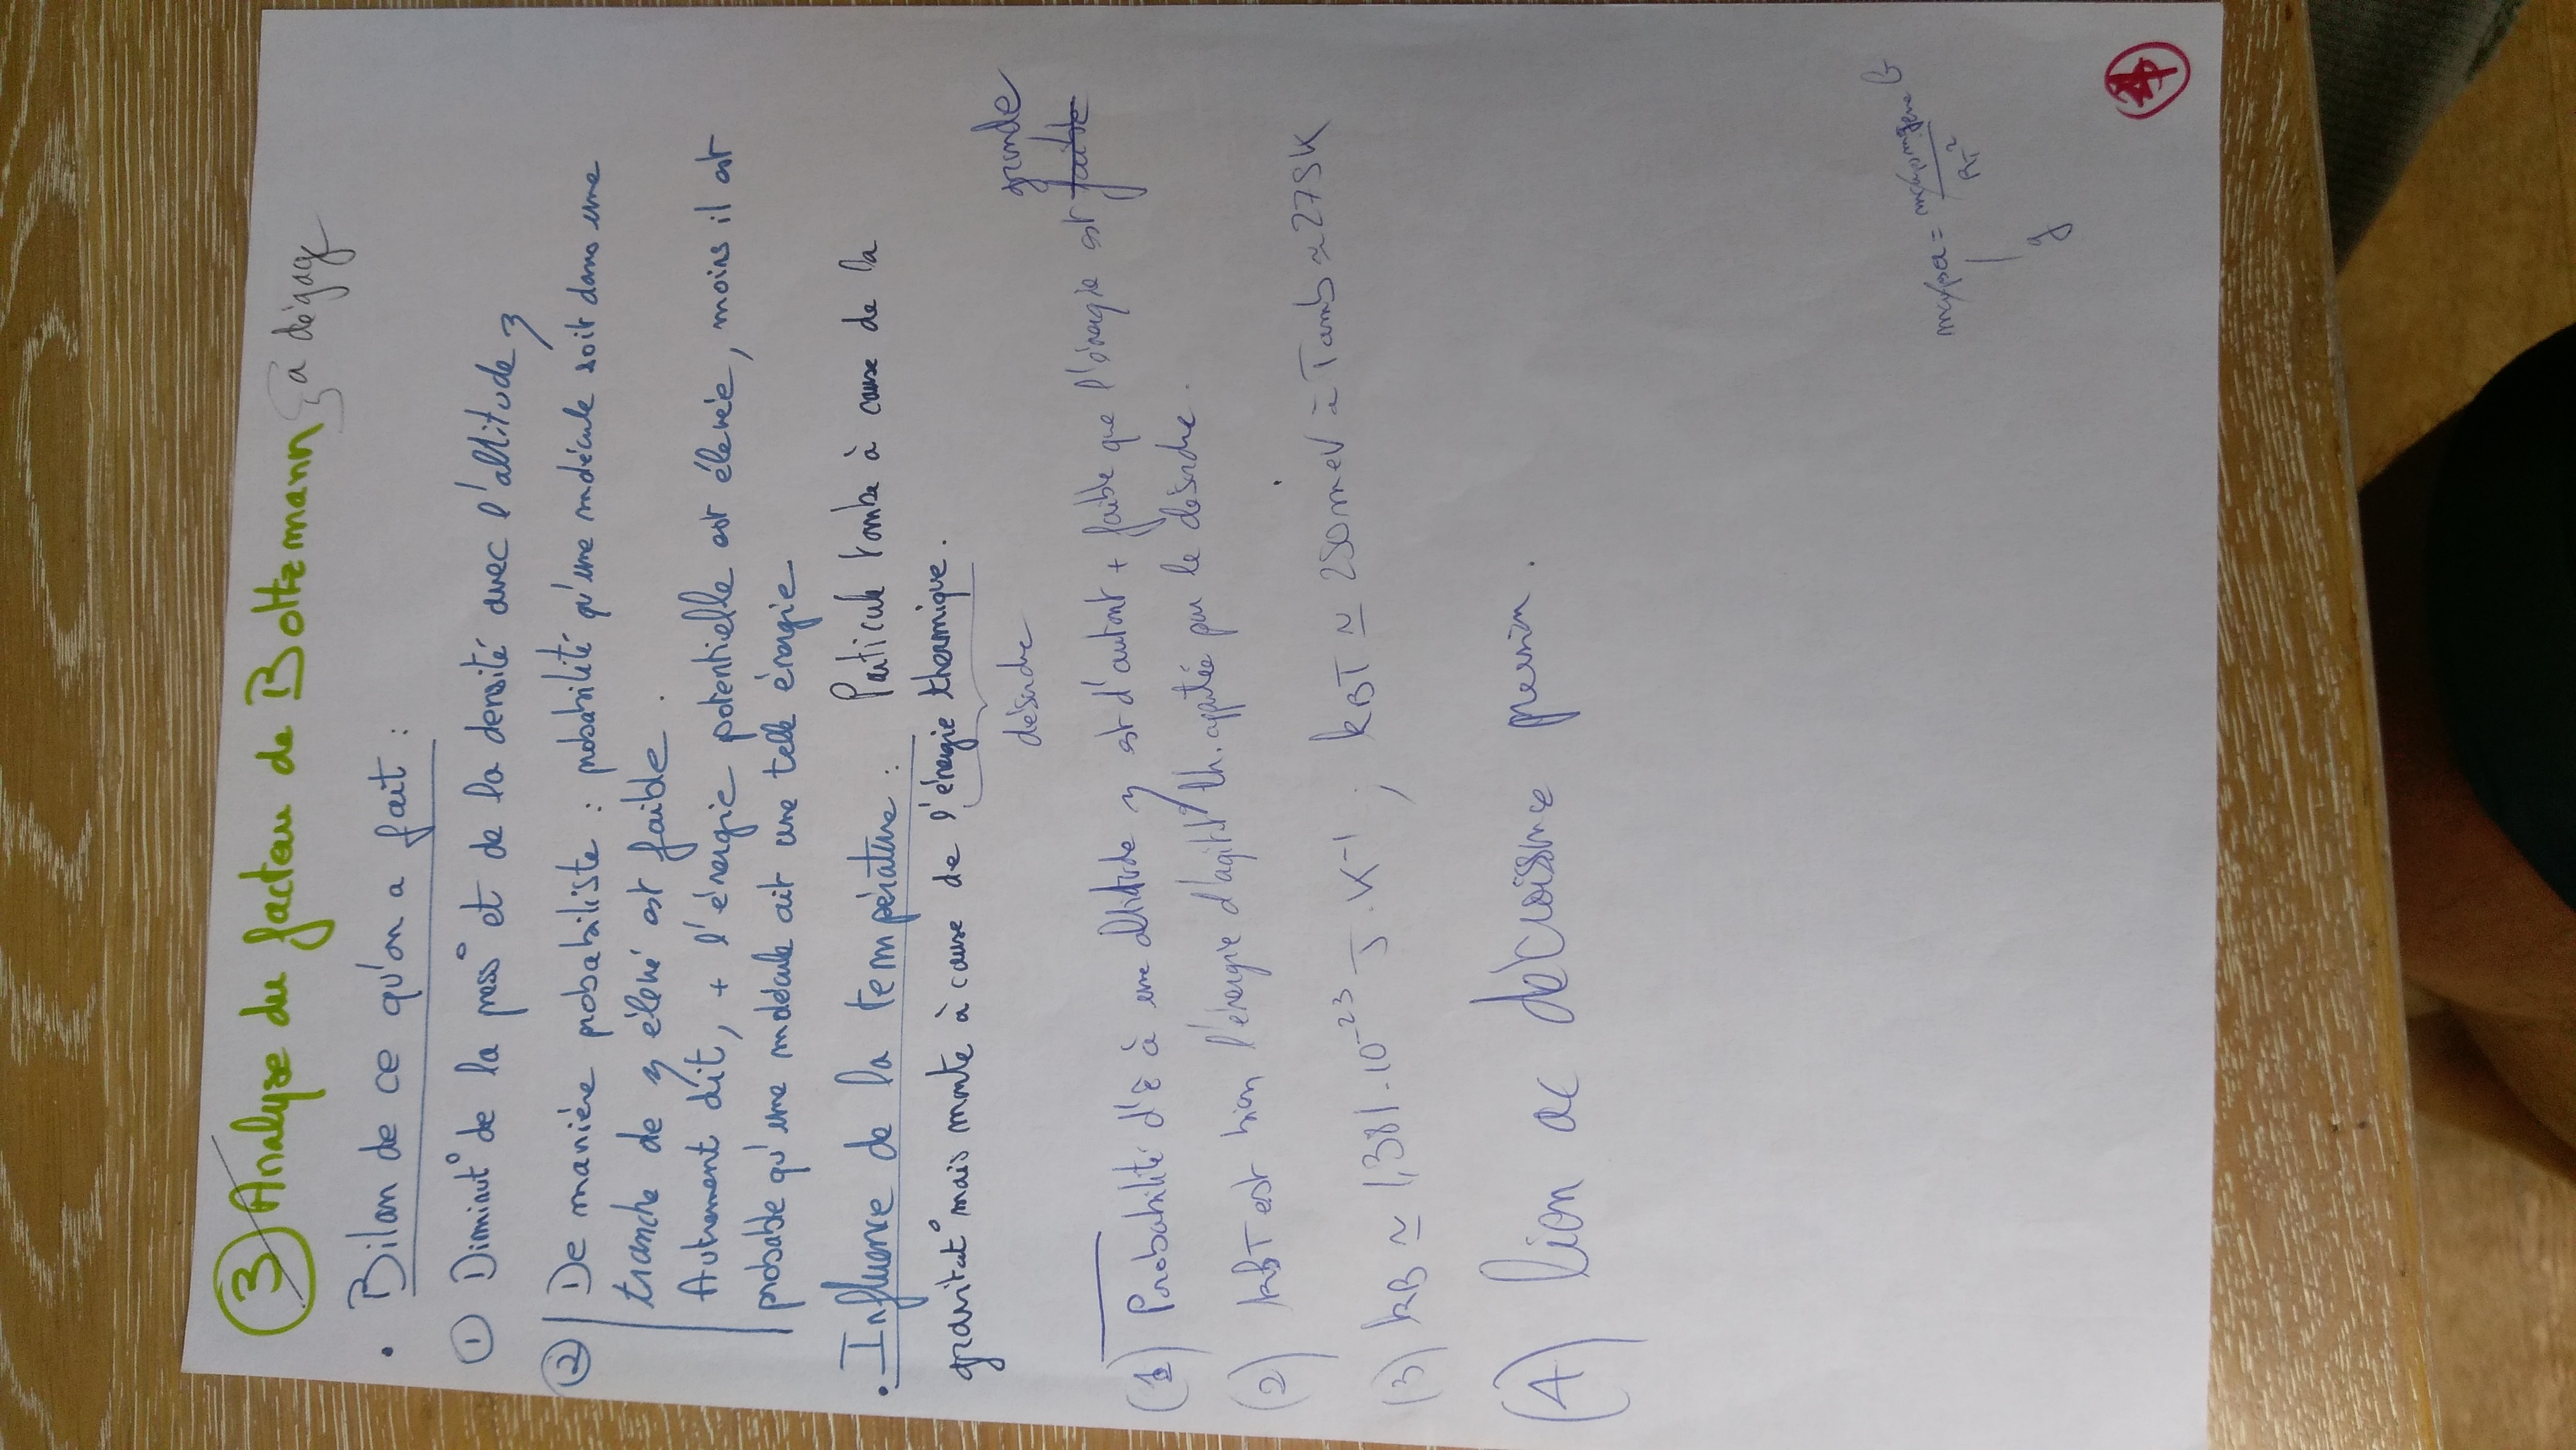 ③ Analyse du facteur de Boltzmann à dégag
• Bilan de ce qu'on a fait :
① Diminut° de la press° et de la densité avec l'altitude z
② De manière probabiliste : probabilité qu'une molécule soit dans une
tranche de z élevé est faible.
Autrement dit, + l'énergie potentielle est élevée, moins il est
probable qu'une molécule ait une telle énergie
• Influence de la température : Particule tombe à cause de la
gravitat° mais monte à cause de l'énergie thermique.
désordre
grande
(1) Probabilité d'ê à une altitude z est d'autant + faible que l'énergie est faible
(2) kBT est bien l'énergie d'agitat° th. apportée par le désordre.
(3) kB ≃ 1,381.10⁻²³ J.K⁻¹ ; kBT ≃ 250meV à Tamb ≈ 275K
(4) lien ac décroissance pression.
RT²
g